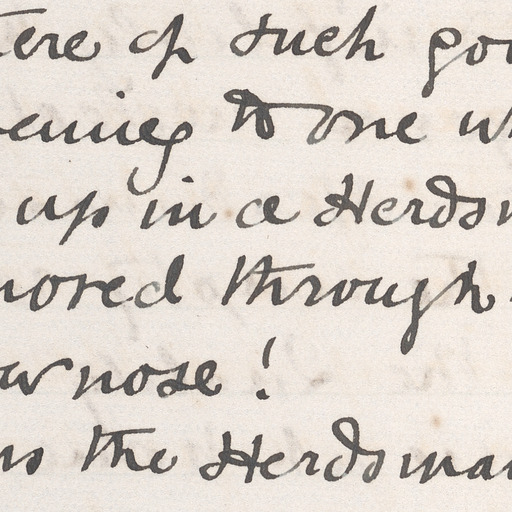 tere of such goo
evening to one wh
up in a Herdsm
nored through
ar nose!
ns the Herdsman